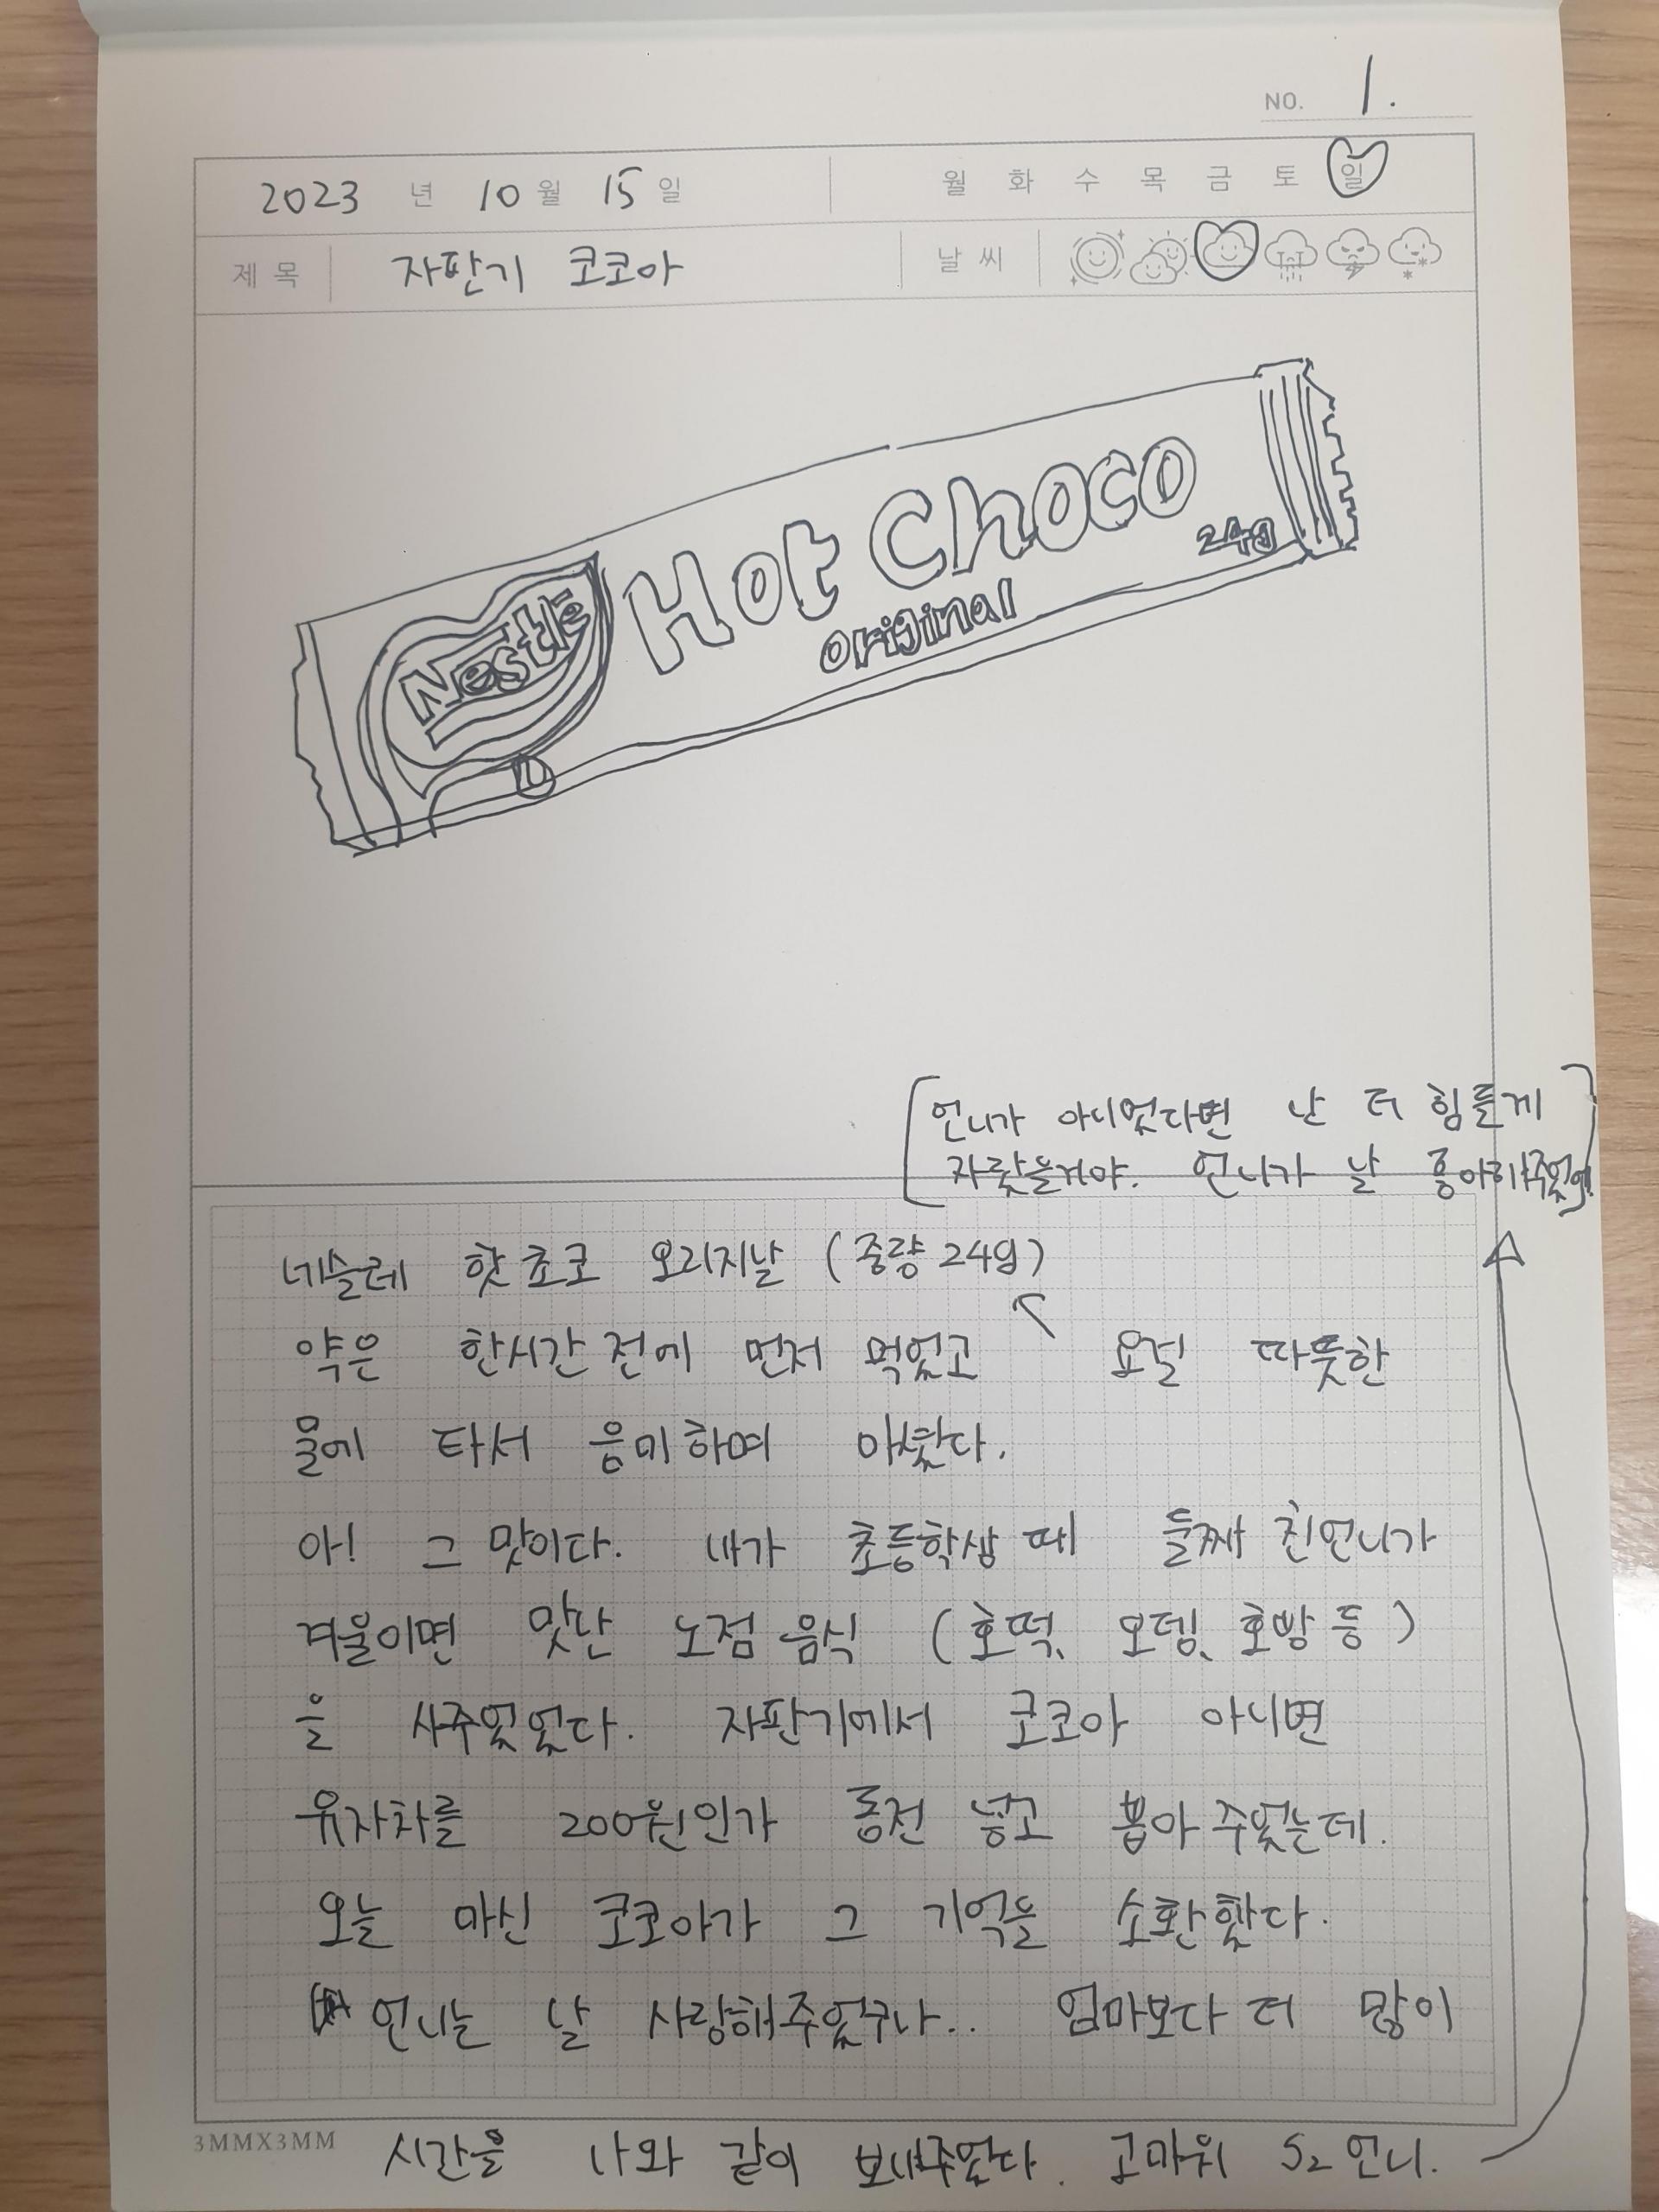 NO. 1.
2023 년 10 월 15 일 월 화 수 목 금 토 일
제 목 자판기 코코아 날 씨
Nestlé Hot Choco
original 24g
언니가 아니었다면 난 더 힘들게
자랐을거야. 언니가 날 좋아해주었어!
네슬레 핫쵸코 오리지날 (중량 24g)
약은 한시간 전에 먼저 먹었고 요걸 따뜻한
물에 타서 음미하며 마셨다.
아! 그 맛이다. 내가 초등학생 때 둘째 친언니가
겨울이면 맛난 노점 음식 (호떡, 오뎅, 호빵 등)
을 사주었었다. 자판기에서 코코아 아니면
유자차를 200원인가 동전 넣고 뽑아 주었는데.
오늘 마신 코코아가 그 기억을 소환했다.
언니는 날 사랑해주었구나.. 엄마보다 더 많이
3MMX3MM
시간을 나와 같이 보내주었다. 고마워 S2 언니.